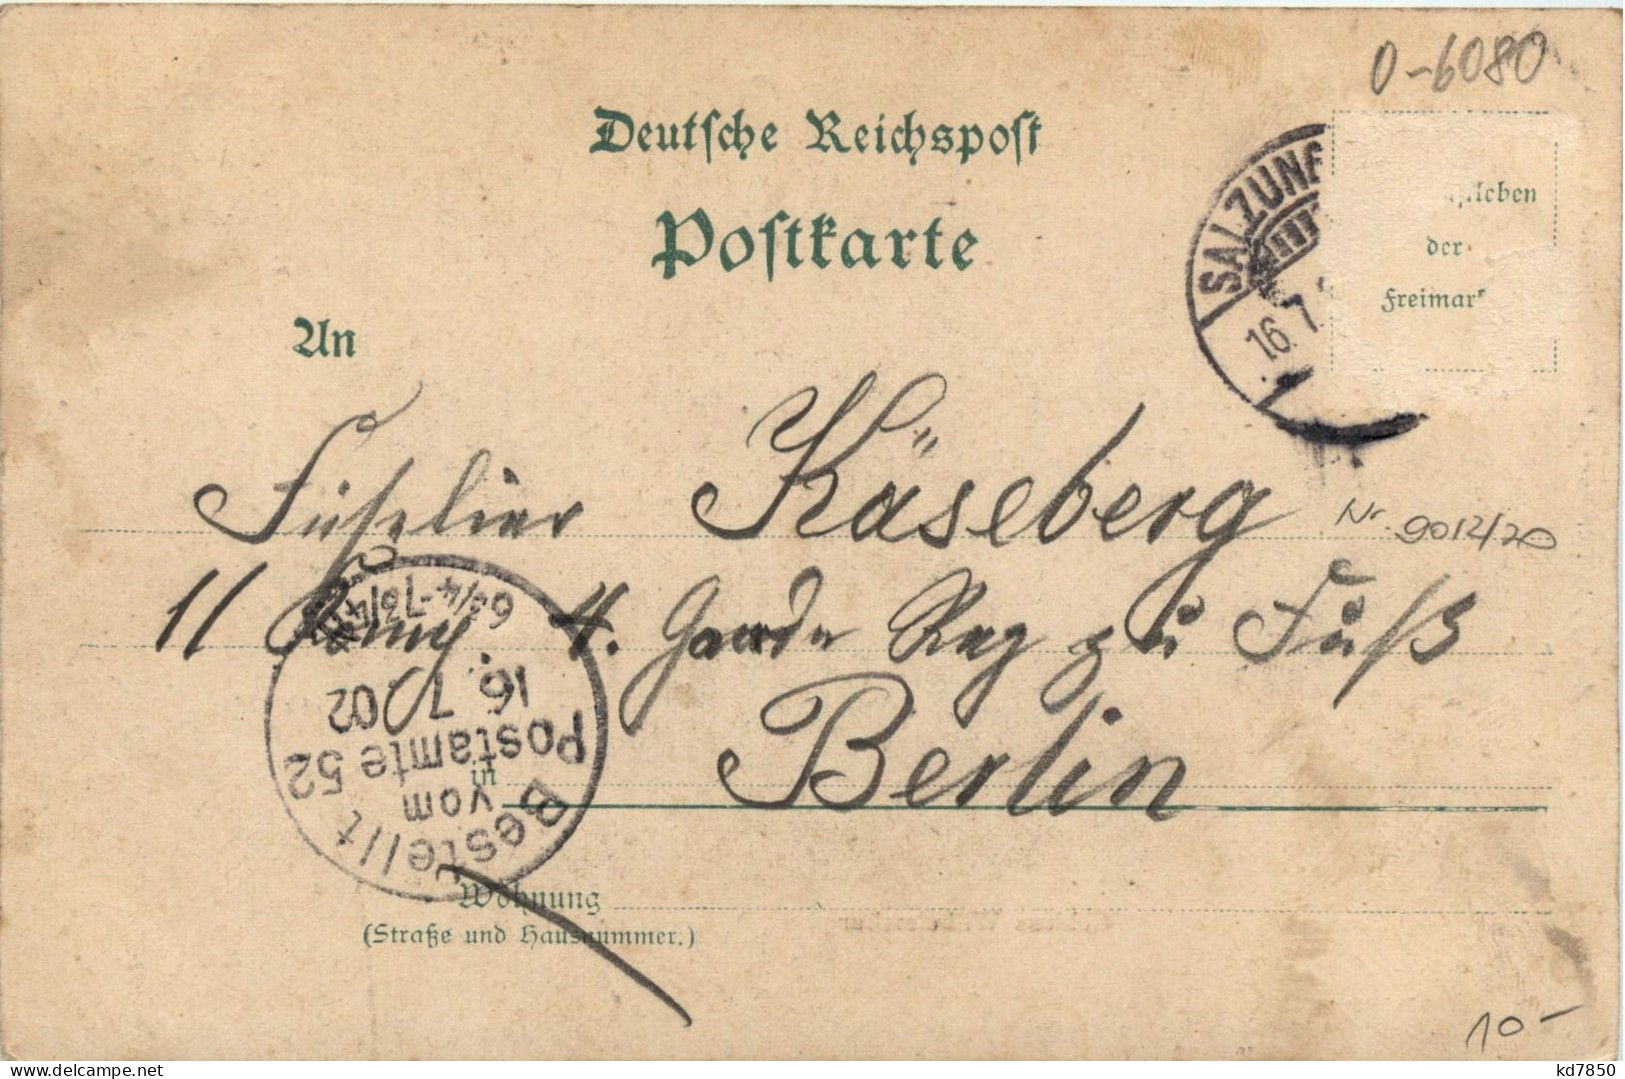 0-6080
Deutsche Reichspost
Postkarte
SALZUNG
16. 7.
der
Freimar
An
Füselier Käseberg
Nr. 9012/20
11 Comp. 4. Garde Reg zu Fuß
in Berlin
Bestellt
vom
Postamte 52
16. 7. 02
6¾-7¾N
Wohnung
(Straße und Hausnummer.)
10-
kd7850